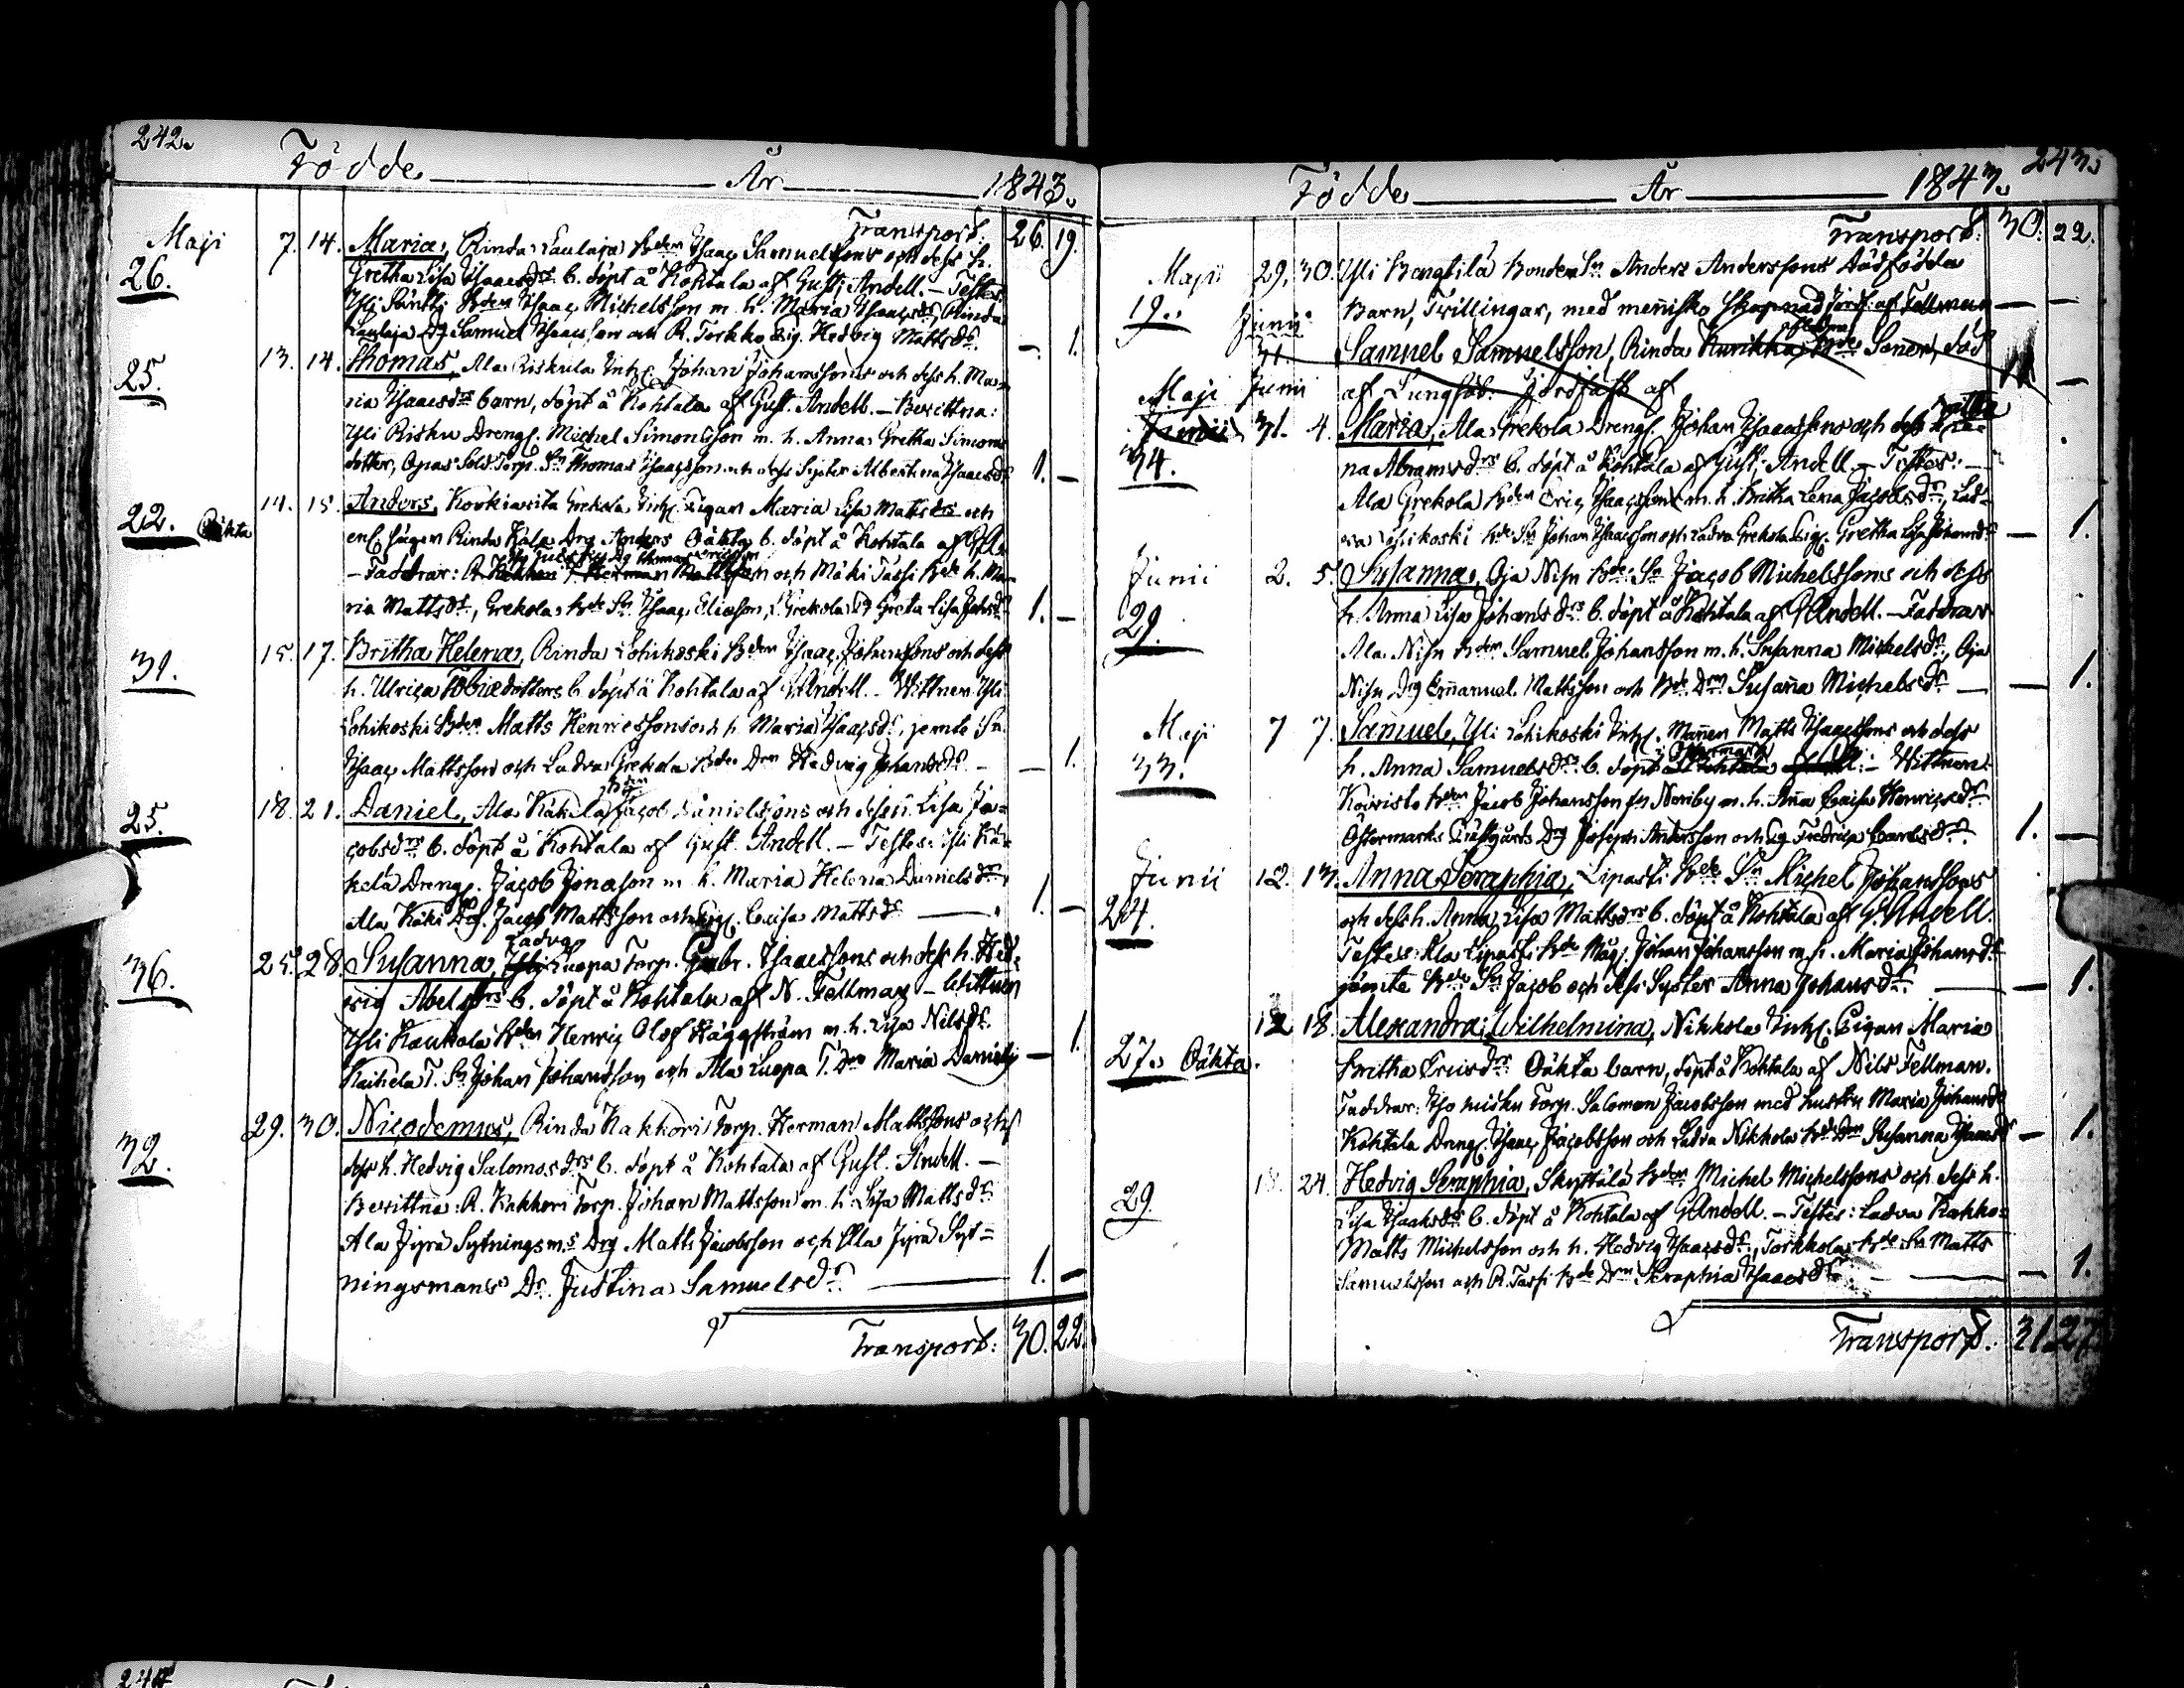 242.
Födde År 1843.
Transport: 26. 19.
Maji 7. 14. Maria, Rinda Laulaja Bden Isaac Samuelssons och dess h.
26. Gretha Lisa Isaacsdrs b. döpt å Kohtala af Gust. Andell. – Testes:
Yli Säntti Bden Isaac Michelsson m. h. Maria Isaacsdr, Rinda
Laulaja Dg Samuel Isaacsson och R. Torkko Pig. Hedvig Mattsdr. – 1.
13. 14. Thomas, Ala Riskula Inhs. Johan Johanssons och dess h. Ma-
25. ria Isaacsdrs barn, döpt å Kohtala af Gust. Andell. – Bevittna:
Yli Risku Dreng. Michel Simonsson m. h. Anna Gretha Simons
dotter, Sold. Torp. Sn Thomas Isaacsson och dess Syster Albertina Isaacsdr 1. –
14. 15. Anders, Grekola Inhs. Pigan Maria Lisa Mattsdrs och
22. Oäkta Rinda Drg Anders Oäkta b. döpt å Kohtala af
– Faddrar: och Mäki Tassi Bde h. Ma-
ria Mattsdr, Grekola Bde Sn Isaac Eliasson, Grekola Greta Lisa 1. –
15. 17. Britha Helena, Rinda Lohikoski Bden Isaac Johanssons och dess
31. h. Ulrica b. döpt å Kohtala af Andell. – Vittnen Yli
Lohikoski Bden Matts Henricssons och h. Maria Isaacsdr, jemte Sn
Isaac Mattsson och Ladva Grekola Bde Drn Hedvig Johansdr. – – 1.
18. 21. Daniel, Ala Käkelä Bden Jacob Danielssons och dess h. Lisa Ja-
25. cobsdrs b. döpt å Kohtala af Gust. Andell. – Testes: Yli Kä-
kelä Dreng. Jacob Jonasson m. h. Maria Helena Danielsdr,
Ala Käki Jacob Mattsson och Caisa Mattsdr – 1. –
Ladva
25. 28. Susanna, Luopa Torp. Gabr. Isaacssons och dess h. Hed-
36. vig Abelsdrs b. döpt å Kohtala af N. Fellman – Vittnen
Yli Kaukola Bden Henric Olof Häggström m. h. Lisa Nilsdr.
Kaihela T. Sn Johan Johansson och Ala Luopa T. Drn Maria Danielsdr – 1.
29. 30. Nicodemus, Rinda Kakkori Torp. Herman Mattssons och
32. dess h. Hedvig Salomosdrs b. döpt å Kohtala af Gust. Andell. –
Bevittna: R. Kakkori Torp. Johan Mattsson m. h. Lisa Mattsdr
Ala Jyrä Sytningsms Drg Matts Jacobsson och Ala Jyrä Syt-
ningsmans Dr. Justina Samuelsdr. – 1. –
Transport: 30. 22.
243.
Födde År 1843.
Transport: 30. 22.
Maji 29. 30. Yli Bengtilä Bonden Sn Anders Anderssons Dödfödda
19. Barn, Tvillingar, med menisko skapnad Jord. af Fellman – –
Junii 31 Samuel Samuelsson, Rinda Kurikka Bde Sonen, död
af Lungsot. Jordfäst af
Maji Junii 31. 4. Maria, Ala Grekola Dreng. Johan Isaacssons och dess h.
34. na Abramsdrs b. döpt å Kohtala af Gust. Andell. – Testes: –
Ala Grekola Bden Eric Isaacsson m. h. Britha Lena Jacobsdr, Lad-
va Lohikoski Bde Sn Johan Isaacsson och Ladva Grekola Pig. Gretha Lisa Johansdr – 1.
Junii 2. 5. Susanna, Oja Nisu Bde Sn Jacob Michelssons och dess
29. h. Anna Lisa Johansdrs b. döpt å Kohtala af Andell. – Faddrar
Ala Nisu Bden Samuel Johansson m. h. Susanna Michelsdr, Oja
Nisu Drg Emanuel Mattsson och Bde Drn Susanna Michelsdr – – 1.
Maji 7 7. Samuel, Yli Lohikoski Inhs. Mannen Matts Isaacssons och dess
33. h. Anna Samuelsdrs b. döpt i Östermark – Vittnen
Koivisto Bden Jacob Johansson fr Norrby m. h. Anna Caisa Henricsdr.
Östermarks Prästgårds Drg Joseph Andersson och Pg Fredrica Carlsdr. 1. –
Junii 12. 13. Anna Seraphia, Lipasti Bde Sn Michel Johanssons
24. och dess h. Anna Lisa Mattsdrs b. döpt å Kohtala af G. Andell.
Testes: Ala Lipasti Bde Måg. Johan Johansson m. h. Maria Johansdr
jämte Bde Sn Jacob och dess Syster Anna Johansdr. – – 1.
12 18. Alexandra Wilhelmina, Nikkola Inhs. Pigan Maria
27. Oäkta. Britha Ericsdrs Oäkta barn, döpt å Kohtala af Nils Fellman.
Faddrar: Torp. Salomon Jacobsson med hustru Maria Johansdr
Kohtala Dreng. Isaac Jacobsson och Ladva Nikkola Bde Drn Susanna Isaacsdr – 1.
18. 24. Hedvig Seraphia, Skyttälä Bden Michel Michelssons och dess h.
29. Lisa Isaaksdrs b. döpt å Kohtala af G. Andell. – Testes: Ladva Kakko-
Matts Michelsson och h. Hedvig Isaacsdr, Torkkola Bde Sn Matts
Samuelsson och R. Tassi Bde Drn Seraphia Isaacsdr – – 1.
Transport. 31. 27.